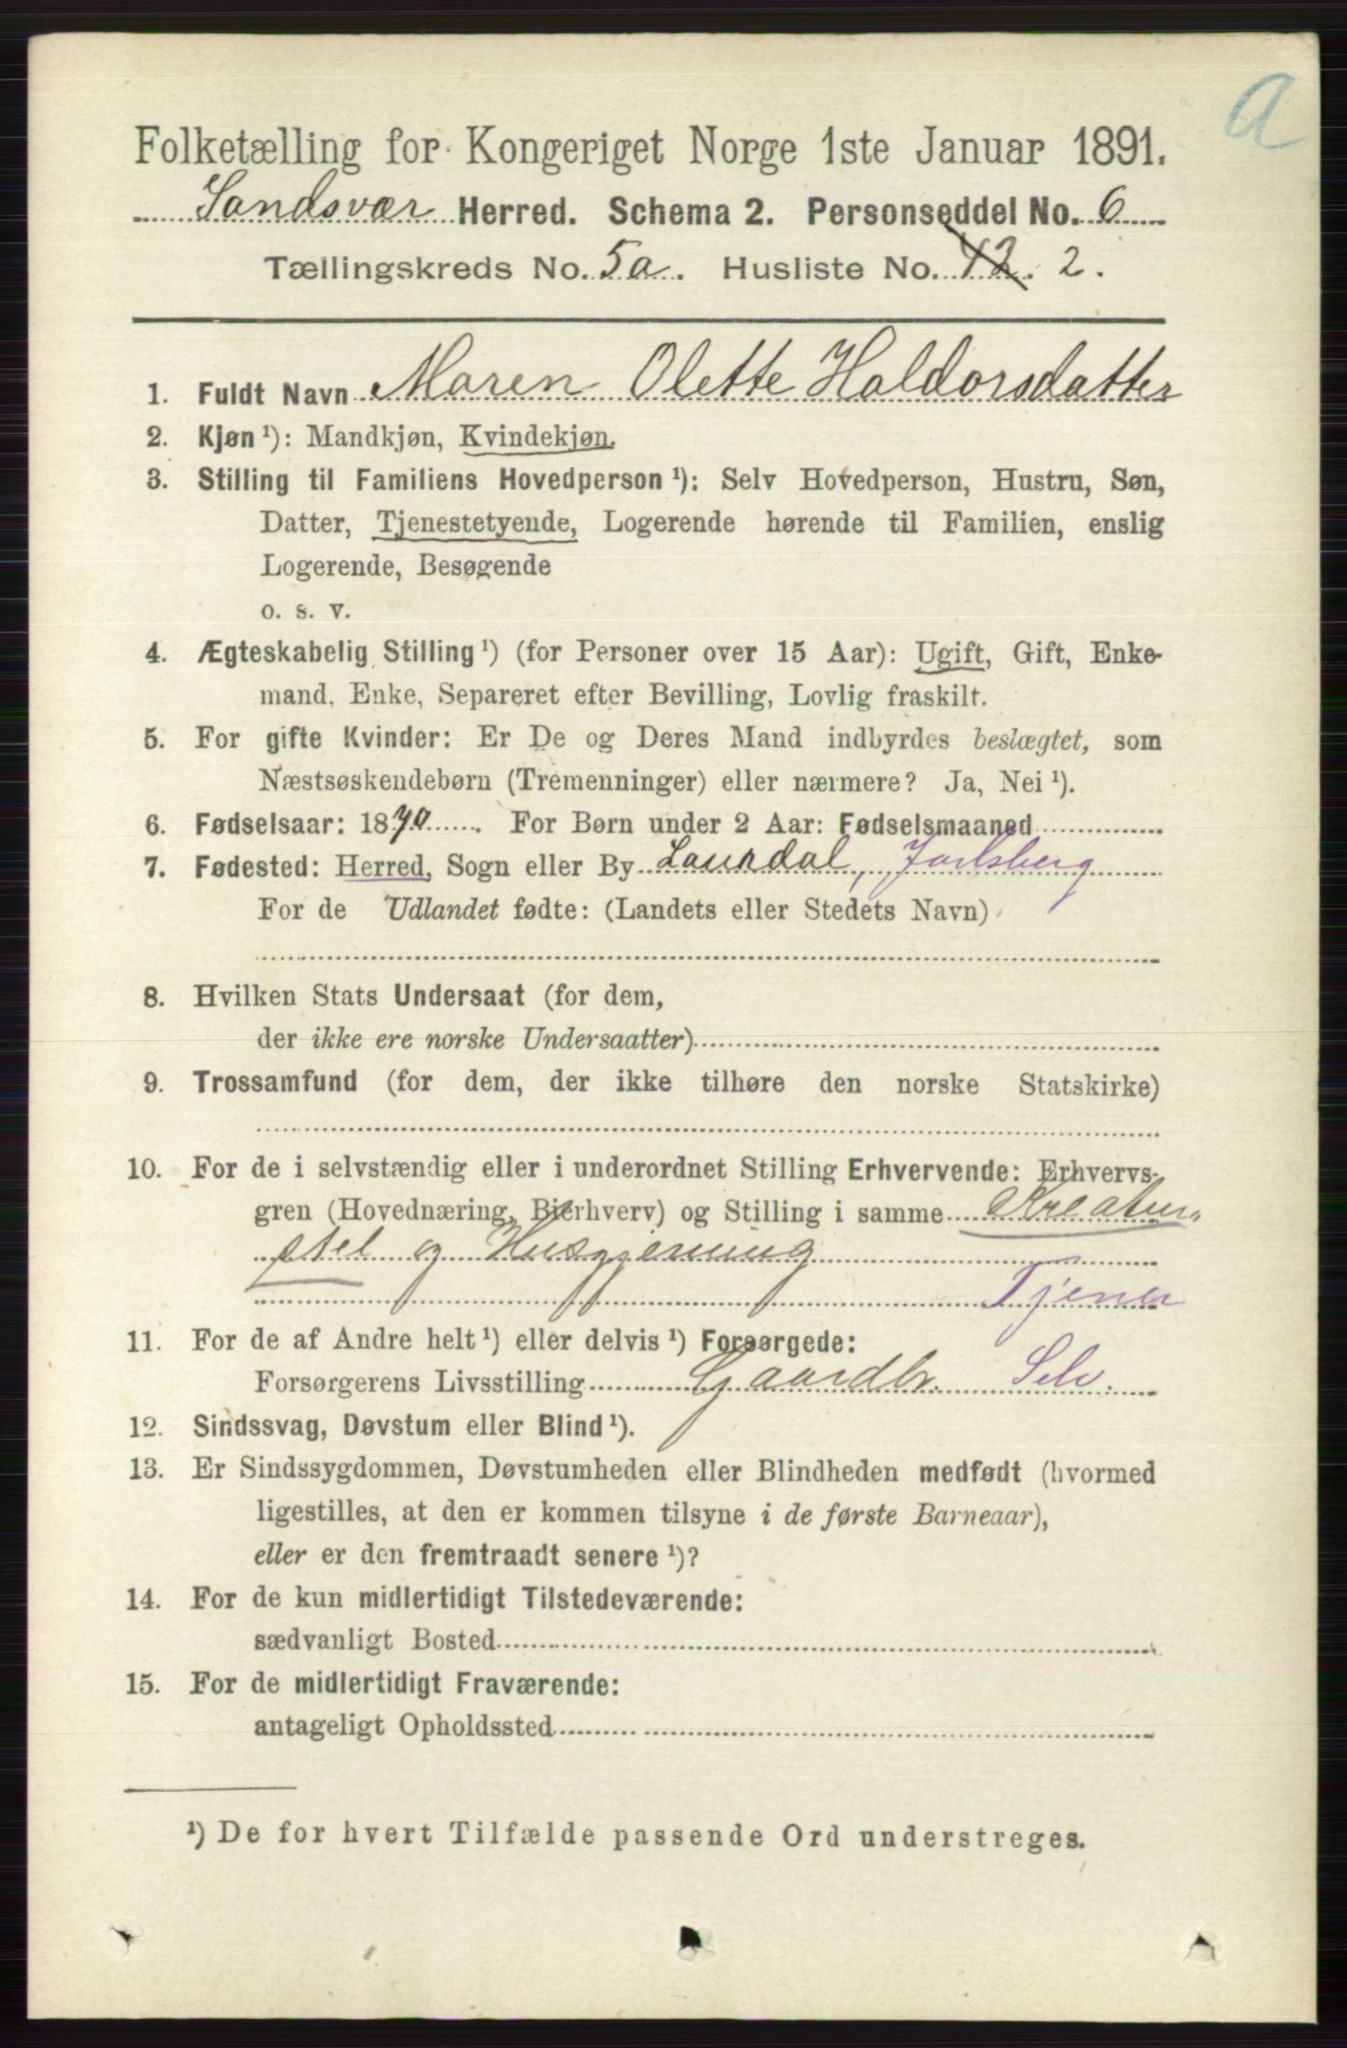 A
Folketælling for Kongeriget Norge 1ste Januar 1891.
Sandsvær Herred. Schema 2. Personseddel No. 6
Tællingskreds No. 5a. Husliste No. 12. 2.
1. Fuldt Navn Maren Olette Haldorsdatter
2. Kjøn¹): Mandkjøn, Kvindekjøn.
3. Stilling til Familiens Hovedperson¹): Selv Hovedperson, Hustru, Søn,
Datter, Tjenestetyende, Logerende hørende til Familien, enslig
Logerende, Besøgende
o. s. v.
4. Ægteskabelig Stilling¹) (for Personer over 15 Aar): Ugift, Gift, Enke-
mand, Enke, Separeret efter Bevilling, Lovlig fraskilt.
5. For gifte Kvinder: Er De og Deres Mand indbyrdes beslægtet, som
Næstsøskendebørn (Tremenninger) eller nærmere? Ja, Nei¹).
6. Fødselsaar: 1870. For Børn under 2 Aar: Fødselsmaaned
7. Fødested: Herred, Sogn eller By Laurdal, Jarlsberg
For de Udlandet fødte: (Landets eller Stedets Navn)
8. Hvilken Stats Undersaat (for dem,
der ikke ere norske Undersaatter)
9. Trossamfund (for dem, der ikke tilhøre den norske Statskirke)
10. For de i selvstændig eller i underordnet Stilling Erhvervende: Erhvervs-
gren (Hovednæring, Bierhverv) og Stilling i samme Kreatur-
stel og Husgjerning
Tjener
11. For de af Andre helt¹) eller delvis¹) Forsørgede:
Forsørgerens Livsstilling Gaardbr. Selv.
12. Sindssvag, Døvstum eller Blind¹).
13. Er Sindssygdommen, Døvstumheden eller Blindheden medfødt (hvormed
ligestilles, at den er kommen tilsyne i de første Barneaar),
eller er den fremtraadt senere¹)?
14. For de kun midlertidigt Tilstedeværende:
sædvanligt Bosted
15. For de midlertidigt Fraværende:
antageligt Opholdssted
¹) De for hvert Tilfælde passende Ord understreges.